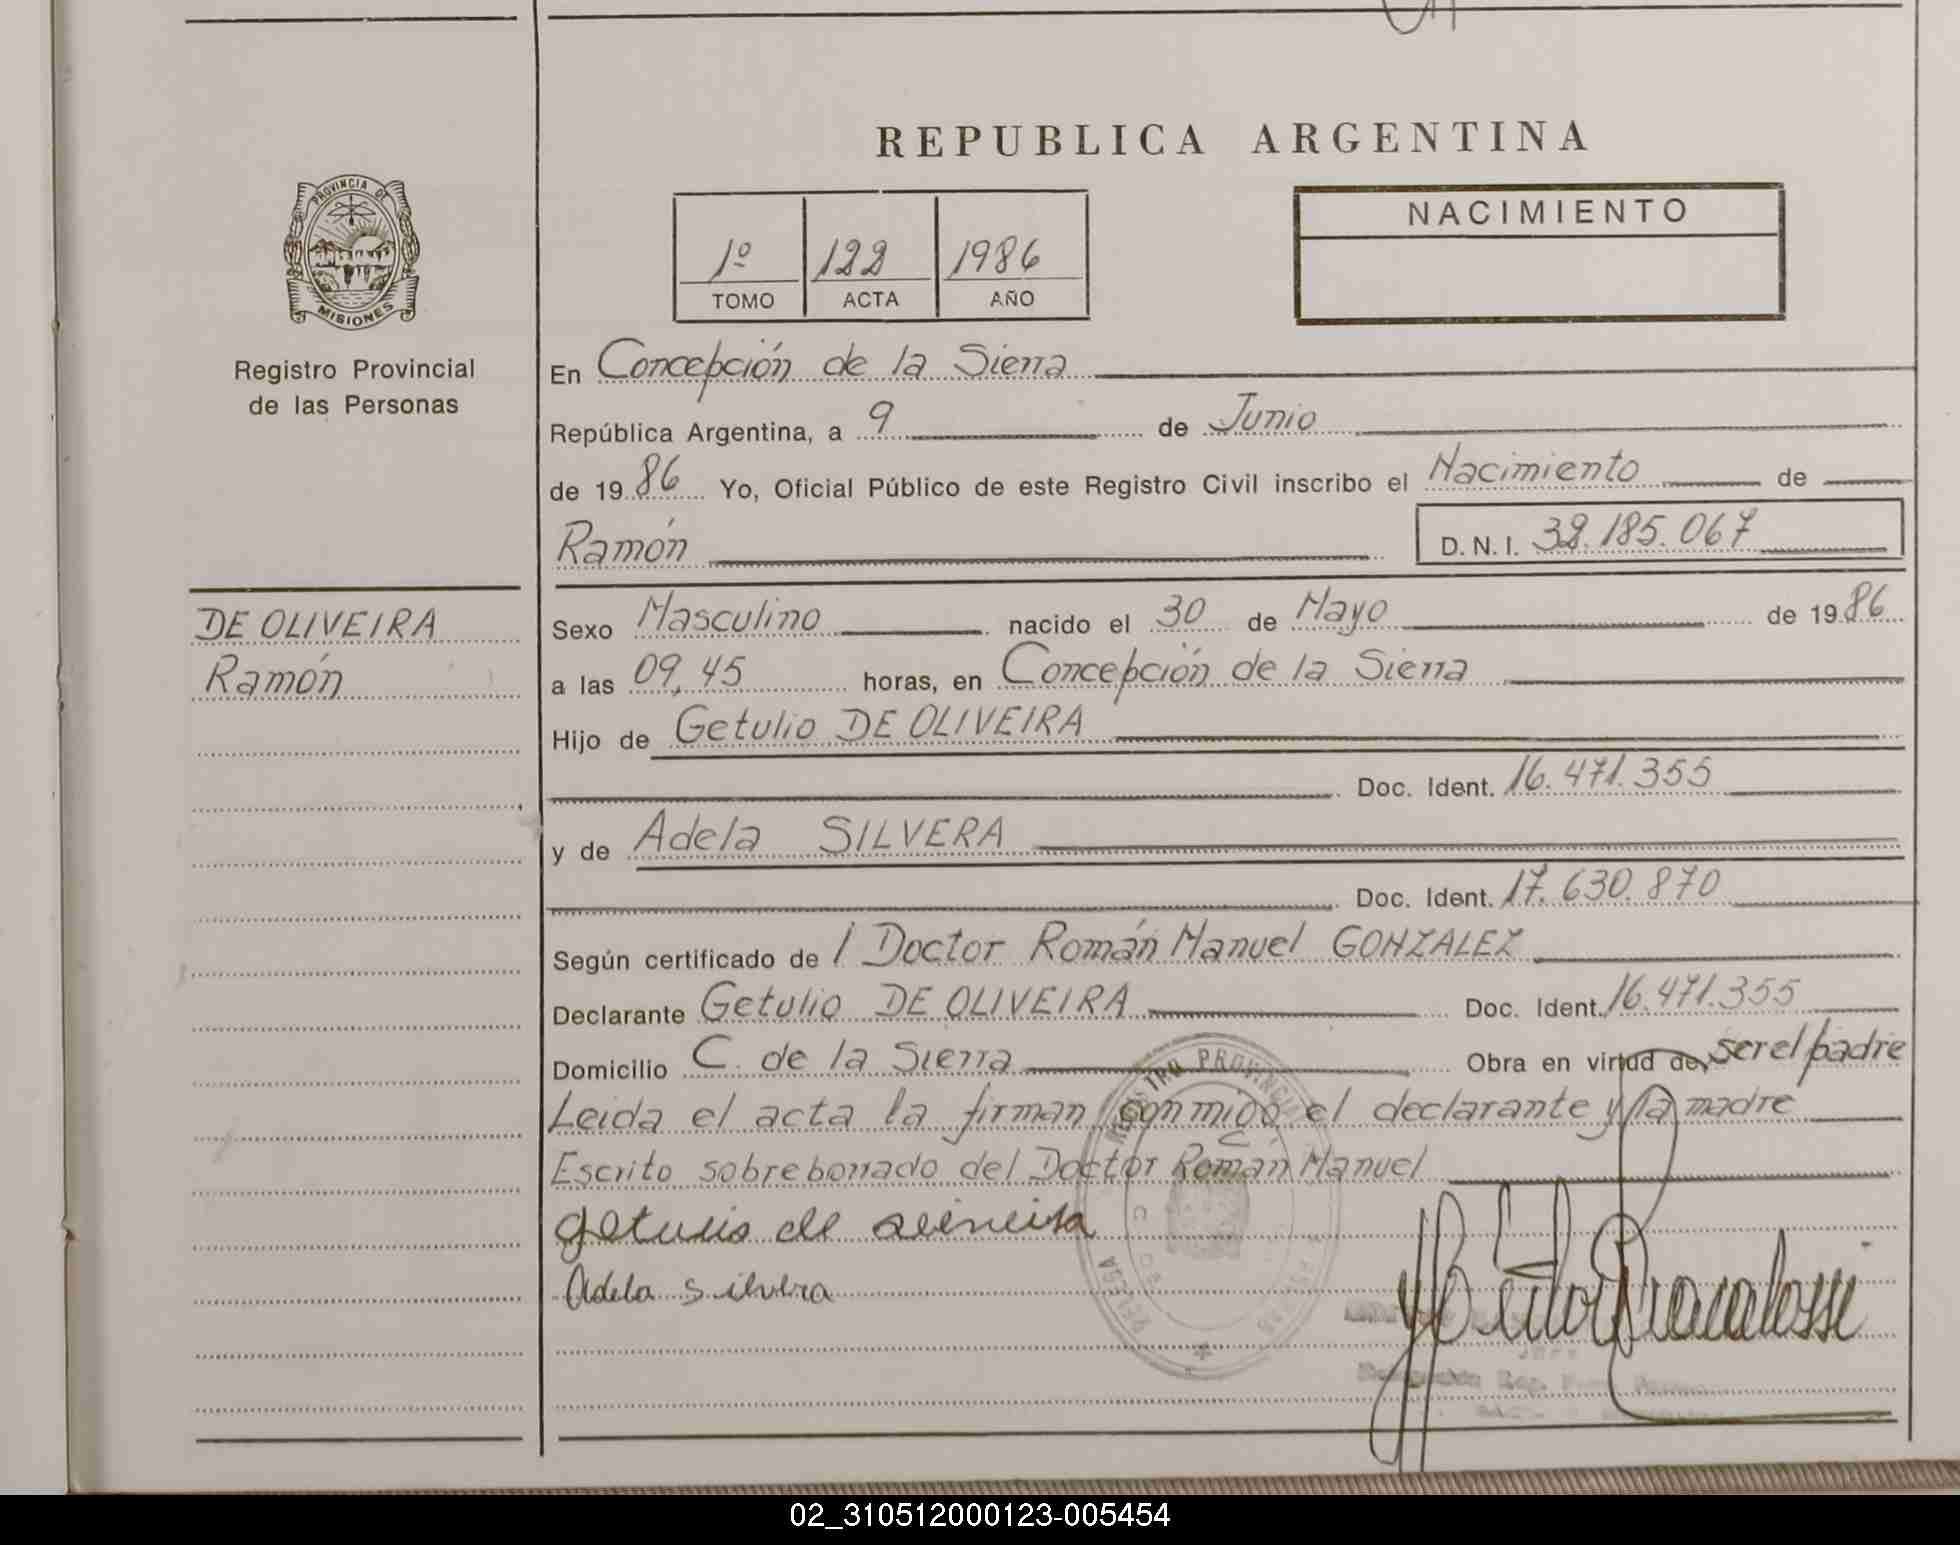 REPUBLICA ARGENTINA
1º 122 1986
TOMO ACTA AÑO
NACIMIENTO
PROVINCIA DE
MISIONES
Registro Provincial
de las Personas
DE OLIVEIRA
Ramón
En Concepción de la Sierra
República Argentina, a 9 de Junio
de 1986 Yo, Oficial Público de este Registro Civil inscribo el Nacimiento de
Ramón D.N.I. 32.185.067
Sexo Masculino nacido el 30 de Mayo de 1986
a las 09,45 horas, en Concepción de la Sierra
Hijo de Getulio DE OLIVEIRA
Doc. Ident. 16.471.355
y de Adela SILVERA
Doc. Ident. 17.630.870
Según certificado de l Doctor Román Manuel GONZALEZ
Declarante Getulio DE OLIVEIRA Doc. Ident. 16.471.355
Domicilio C. de la Sierra Obra en virtud de, ser el padre
Leida el acta la firman conmigo el declarante y la madre
Escrito sobreborrado del Doctor Román Manuel
Adela Silvera
REGISTRO PROVINCIAL
02_310512000123-005454